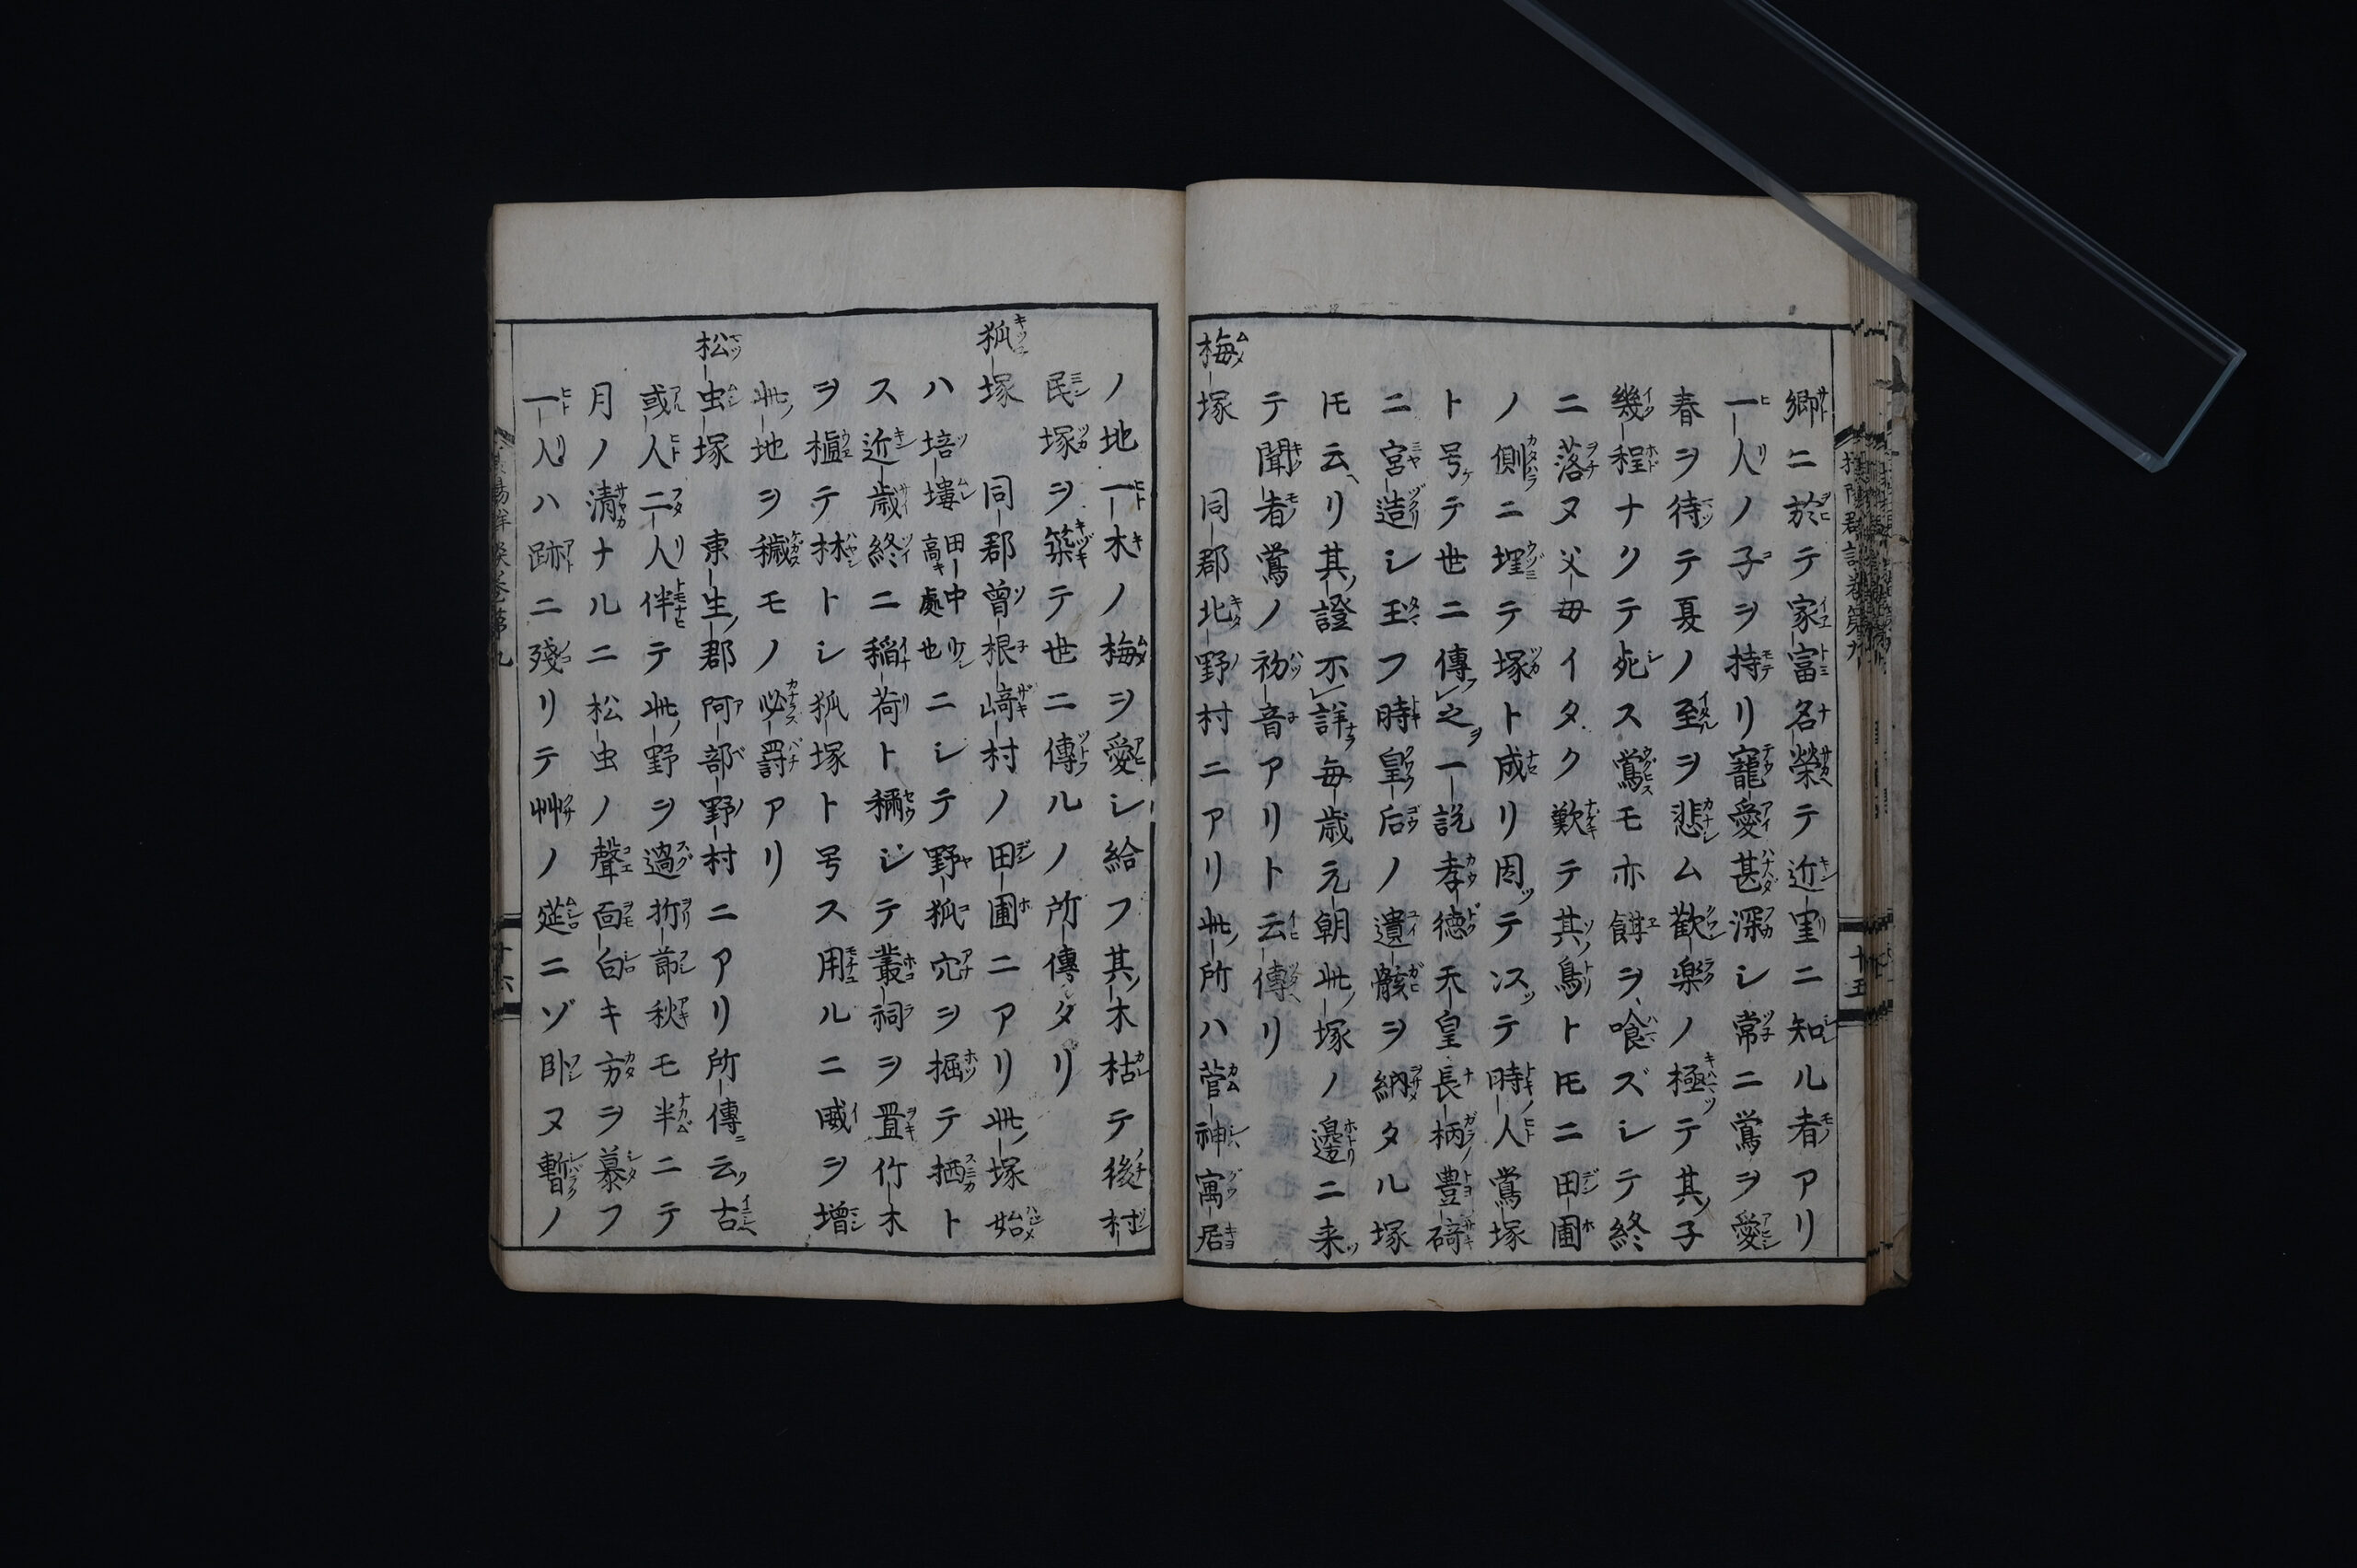 郷ニ於テ家富名榮テ近里ニ知ル者アリ
一人ノ子ヲ持リ寵愛甚深シ常ニ鴬ヲ愛
春ヲ待テ夏ノ至ヲ悲ム歓楽ノ極テ其子
幾程ナクテ死ス鴬モ亦餌ヲ喰ズシテ終
ニ落ヌ父母イタク歎テ其鳥トモニ田圃
ノ側ニ埋テ塚ト成リ因テ冴テ時人鴬塚
ト号テ世ニ傳之一説孝徳天皇長柄豊碕
ニ宮造シ玉フ時皇后ノ遺骸ヲ納タル塚
トモ云リ其證不詳毎歳元朝此塚ノ邊ニ来
テ聞者鴬ノ初音アリト云傳リ
梅塚 同郡北野村ニアリ此所ハ菅神寓居
十五
ノ地一木ノ梅ヲ愛シ給フ其木枯テ後村
民塚ヲ築テ世ニ傳ルノ所傳タリ
狐塚 同郡曾根﨑村ノ田圃ニアリ此塚始
ハ培塿田中高キ處也ニシテ野狐穴ヲ掘テ栖ト
ス近歳終ニ稲荷ト稱ジテ叢祠ヲ置竹木
ヲ植テ林トシ狐塚ト号ス用ルニ威ヲ増
此地ヲ穢モノ必罸アリ
松虫塚 東生郡阿部野村ニアリ所傳云古
或人二人伴テ此野ヲ過折節秋モ半ニテ
月ノ清ナルニ松虫ノ聲面白キ方ヲ慕フ
一人ハ跡ニ殘リテ艸ノ莚ニゾ卧ヌ暫ノ